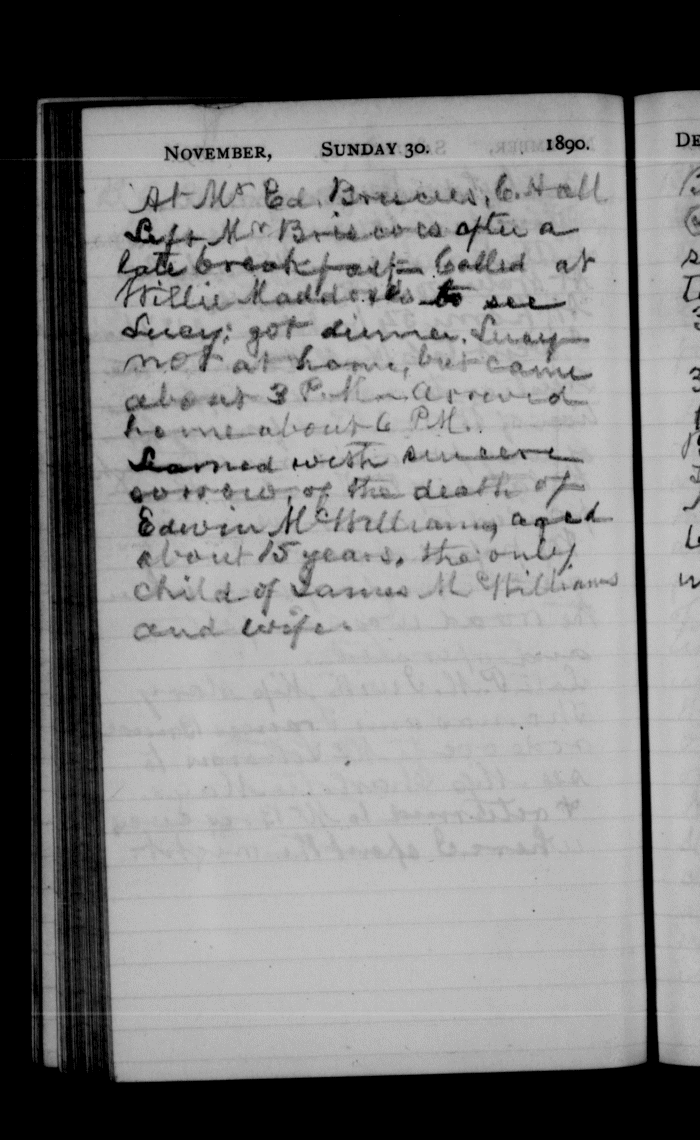 NOVEMBER, SUNDAY 30. 1890.
At Mr Ed. C. Hall
Left Mr Briscoes after a
late breakfast. Called at
Willie Maddox's to see
Lucy; got dinner. Lucy
not at home, but came
about 3 P.M. Arrived
home about 6 P.M.
Learned with sincere
sorrow, of the death of
Edwin McWilliams, aged
about 15 years, the only
child of James McWilliams
and wife.